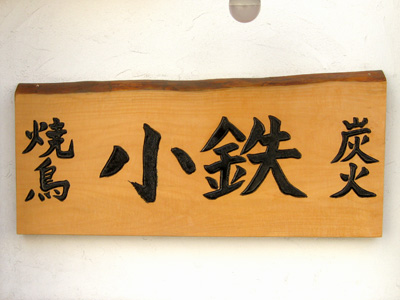 焼鳥
小鉄
炭火